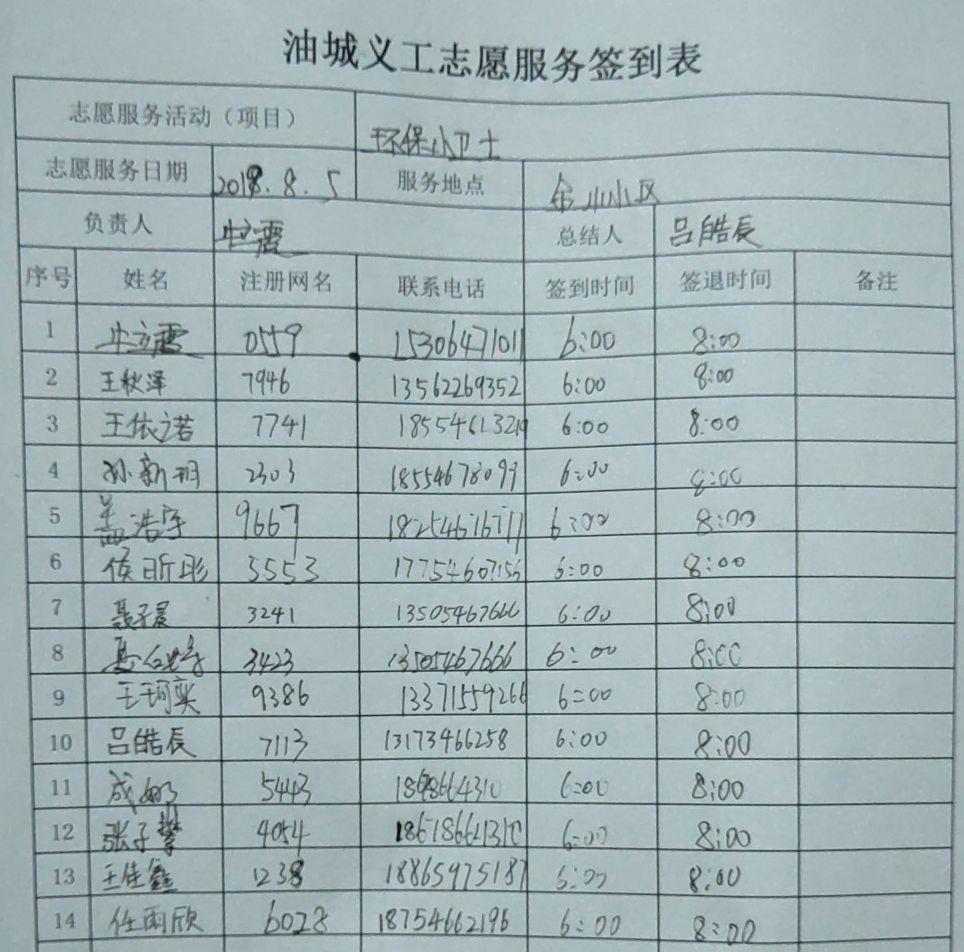 油城义工志愿服务签到表
志愿服务活动（项目） 环保小卫士
志愿服务日期 2018.8.5 服务地点 金山小区
负责人 牛立霞 总结人 吕皓辰
序号 姓名 注册网名 联系电话 签到时间 签退时间 备注
1 牛立霞 0559 15306471011 6:00 8:00
2 王秋泽 7946 13562269352 6:00 8:00
3 王依诺 7741 18554613219 6:00 8:00
4 孙新玥 2303 18554678099 6:00 8:00
5 盖浩宇 9667 18254616717 6:00 8:00
6 侯昕彤 5553 17754607156 6:00 8:00
7 聂子晨 3241 13505467666 6:00 8:00
8 3423 13505467666 6:00 8:00
9 王珂奕 9386 13371559266 6:00 8:00
10 吕皓辰 7113 13173466258 6:00 8:00
11 成娜 5443 6:00 8:00
12 张子攀 4054 6:00 8:00
13 王佳鑫 1238 18865975187 6:00 8:00
14 任雨欣 6028 18754662196 6:00 8:00